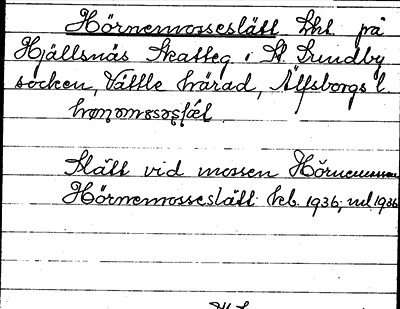 Hörnemosseslätt Lht. på
Hjällsnäs Skatteg. i St. Lundby
socken, Vättle härad, Älfsborgs l.
Slätt vid mossen Hörnemossen
Hörnemosseslätt kb. 1936; ud 1936